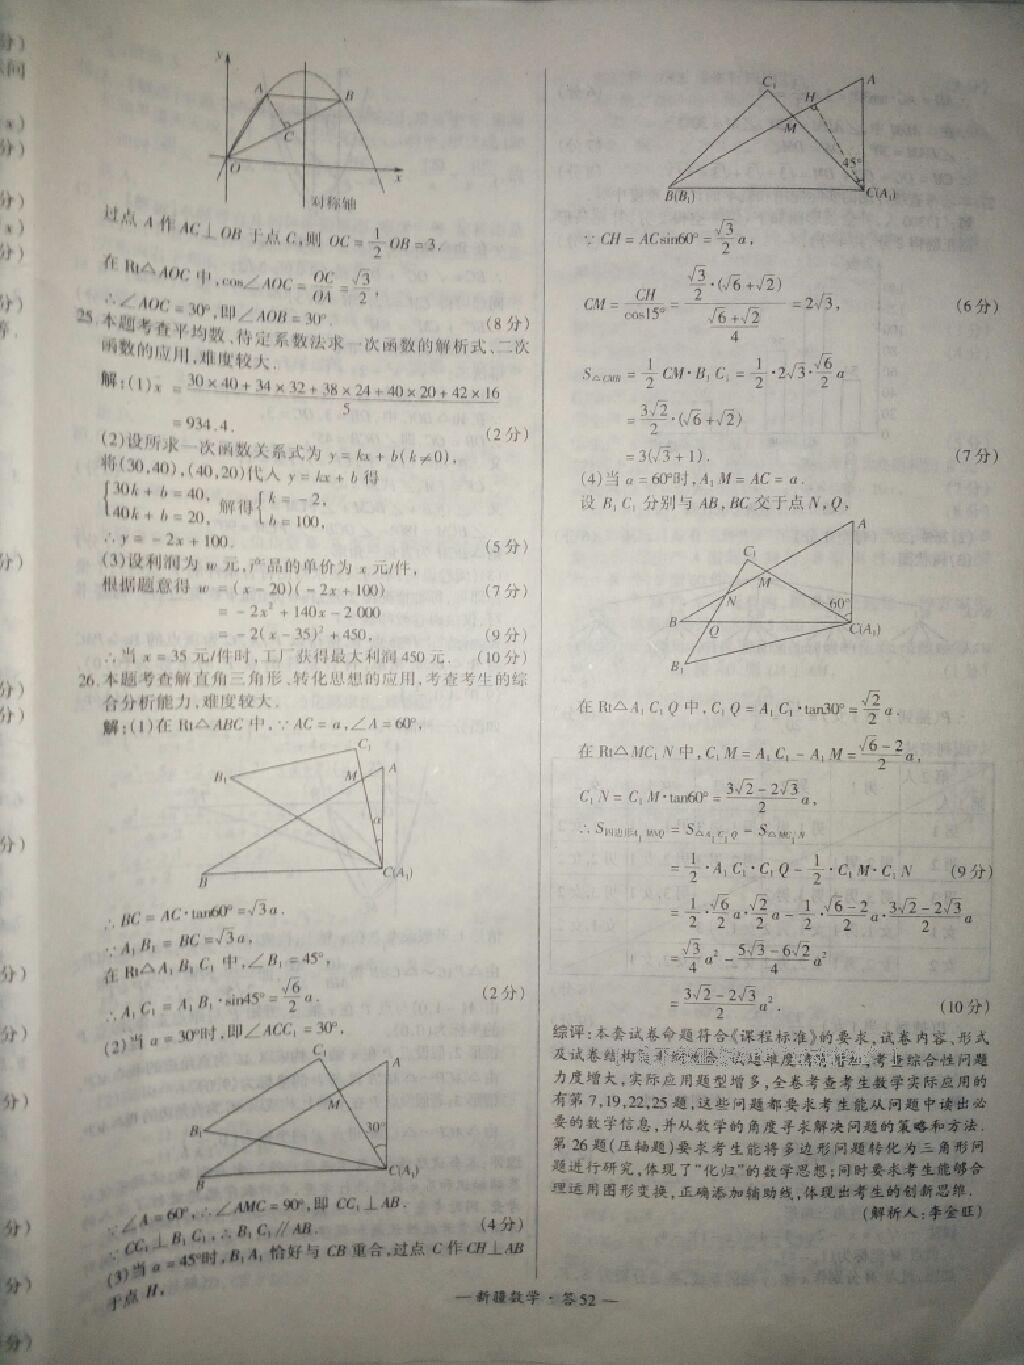 y
A
B
C
O
x
对称轴
过点 A 作 AC⊥OB 于点 C,则 OC=1/2 OB=3,
在 Rt△AOC 中,cos∠AOC=OC/OA=√3/2,
∴∠AOC=30°,即∠AOB=30°. (8分)
25.本题考查平均数、待定系数法求一次函数的解析式、二次
函数的应用,难度较大.
解:(1)x=(30×40+34×32+38×24+40×20+42×16)/5
=934.4. (2分)
(2)设所求一次函数关系式为 y=kx+b(k≠0),
将(30,40),(40,20)代入 y=kx+b 得
{30k+b=40, 40k+b=20, 解得{k=-2, b=100,
∴y=-2x+100. (5分)
(3)设利润为 w 元,产品的单价为 x 元/件,
根据题意得 w=(x-20)(-2x+100) (7分)
=-2x²+140x-2 000
=-2(x-35)²+450, (9分)
∴当 x=35 元/件时,工厂获得最大利润450元. (10分)
26.本题考查解直角三角形、转化思想的应用,考查考生的综
合分析能力,难度较大.
解:(1)在 Rt△ABC 中,∵AC=a,∠A=60°,
C₁
B₁
M
A
α
B
C(A₁)
∴BC=AC·tan60°=√3a.
∵A₁B₁=BC=√3a,
在 Rt△A₁B₁C₁ 中,∠B₁=45°,
∴A₁C₁=A₁B₁·sin45°=√6/2 a. (2分)
(2)当 α=30°时,即∠ACC₁=30°,
C₁
A
M
B₁
30°
B
C(A₁)
∵∠A=60°,∴∠AMC=90°,即 CC₁⊥AB.
∵CC₁⊥B₁C₁,∴B₁C₁∥AB. (4分)
(3)当 α=45°时,B₁A₁ 恰好与 CB 重合,过点 C 作 CH⊥AB
于点 H,
C₁
H
A
M
45°
B(B₁)
C(A₁)
∵CH=ACsin60°=√3/2 a,
CM=CH/cos15°=(√3/2·(√6+√2))/((√6+√2)/4)=2√3, (6分)
S△CMB₁=1/2 CM·B₁C₁=1/2·2√3·√6/2 a
=3√2/2·(√6+√2)
=3(√3+1). (7分)
(4)当 α=60°时,A₁M=AC=a.
设 B₁C₁ 分别与 AB,BC 交于点 N,Q,
A
C₁
M
N
60°
B
Q
C(A₁)
B₁
在 Rt△A₁C₁Q 中,C₁Q=A₁C₁·tan30°=√2/2 a.
在 Rt△MC₁N 中,C₁M=A₁C₁-A₁M=(√6-2)/2 a,
C₁N=C₁M·tan60°=(3√2-2√3)/2 a,
∴S四边形A₁MNQ=S△A₁C₁Q-S△MC₁N
=1/2·A₁C₁·C₁Q-1/2·C₁M·C₁N (9分)
=1/2·√6/2 a·√2/2 a-1/2·(√6-2)/2 a·(3√2-2√3)/2 a
=√3/4 a²-(5√3-6√2)/4 a²
=(3√2-2√3)/2 a². (10分)
综评:本套试卷命题符合《课程标准》的要求,试卷内容、形式
及试卷结构 考查综合性问题
力度增大,实际应用题型增多,全卷考查考生数学实际应用的
有第 7,19,22,25 题,这些问题都要求考生能从问题中读出必
要的数学信息,并从数学的角度寻求解决问题的策略和方法.
第 26 题(压轴题)要求考生能将多边形问题转化为三角形问
题进行研究,体现了"化归"的数学思想;同时要求考生能够合
理运用图形变换,正确添加辅助线,体现出考生的创新思维.
(解析人:李金旺)
— 新疆数学·答52 —